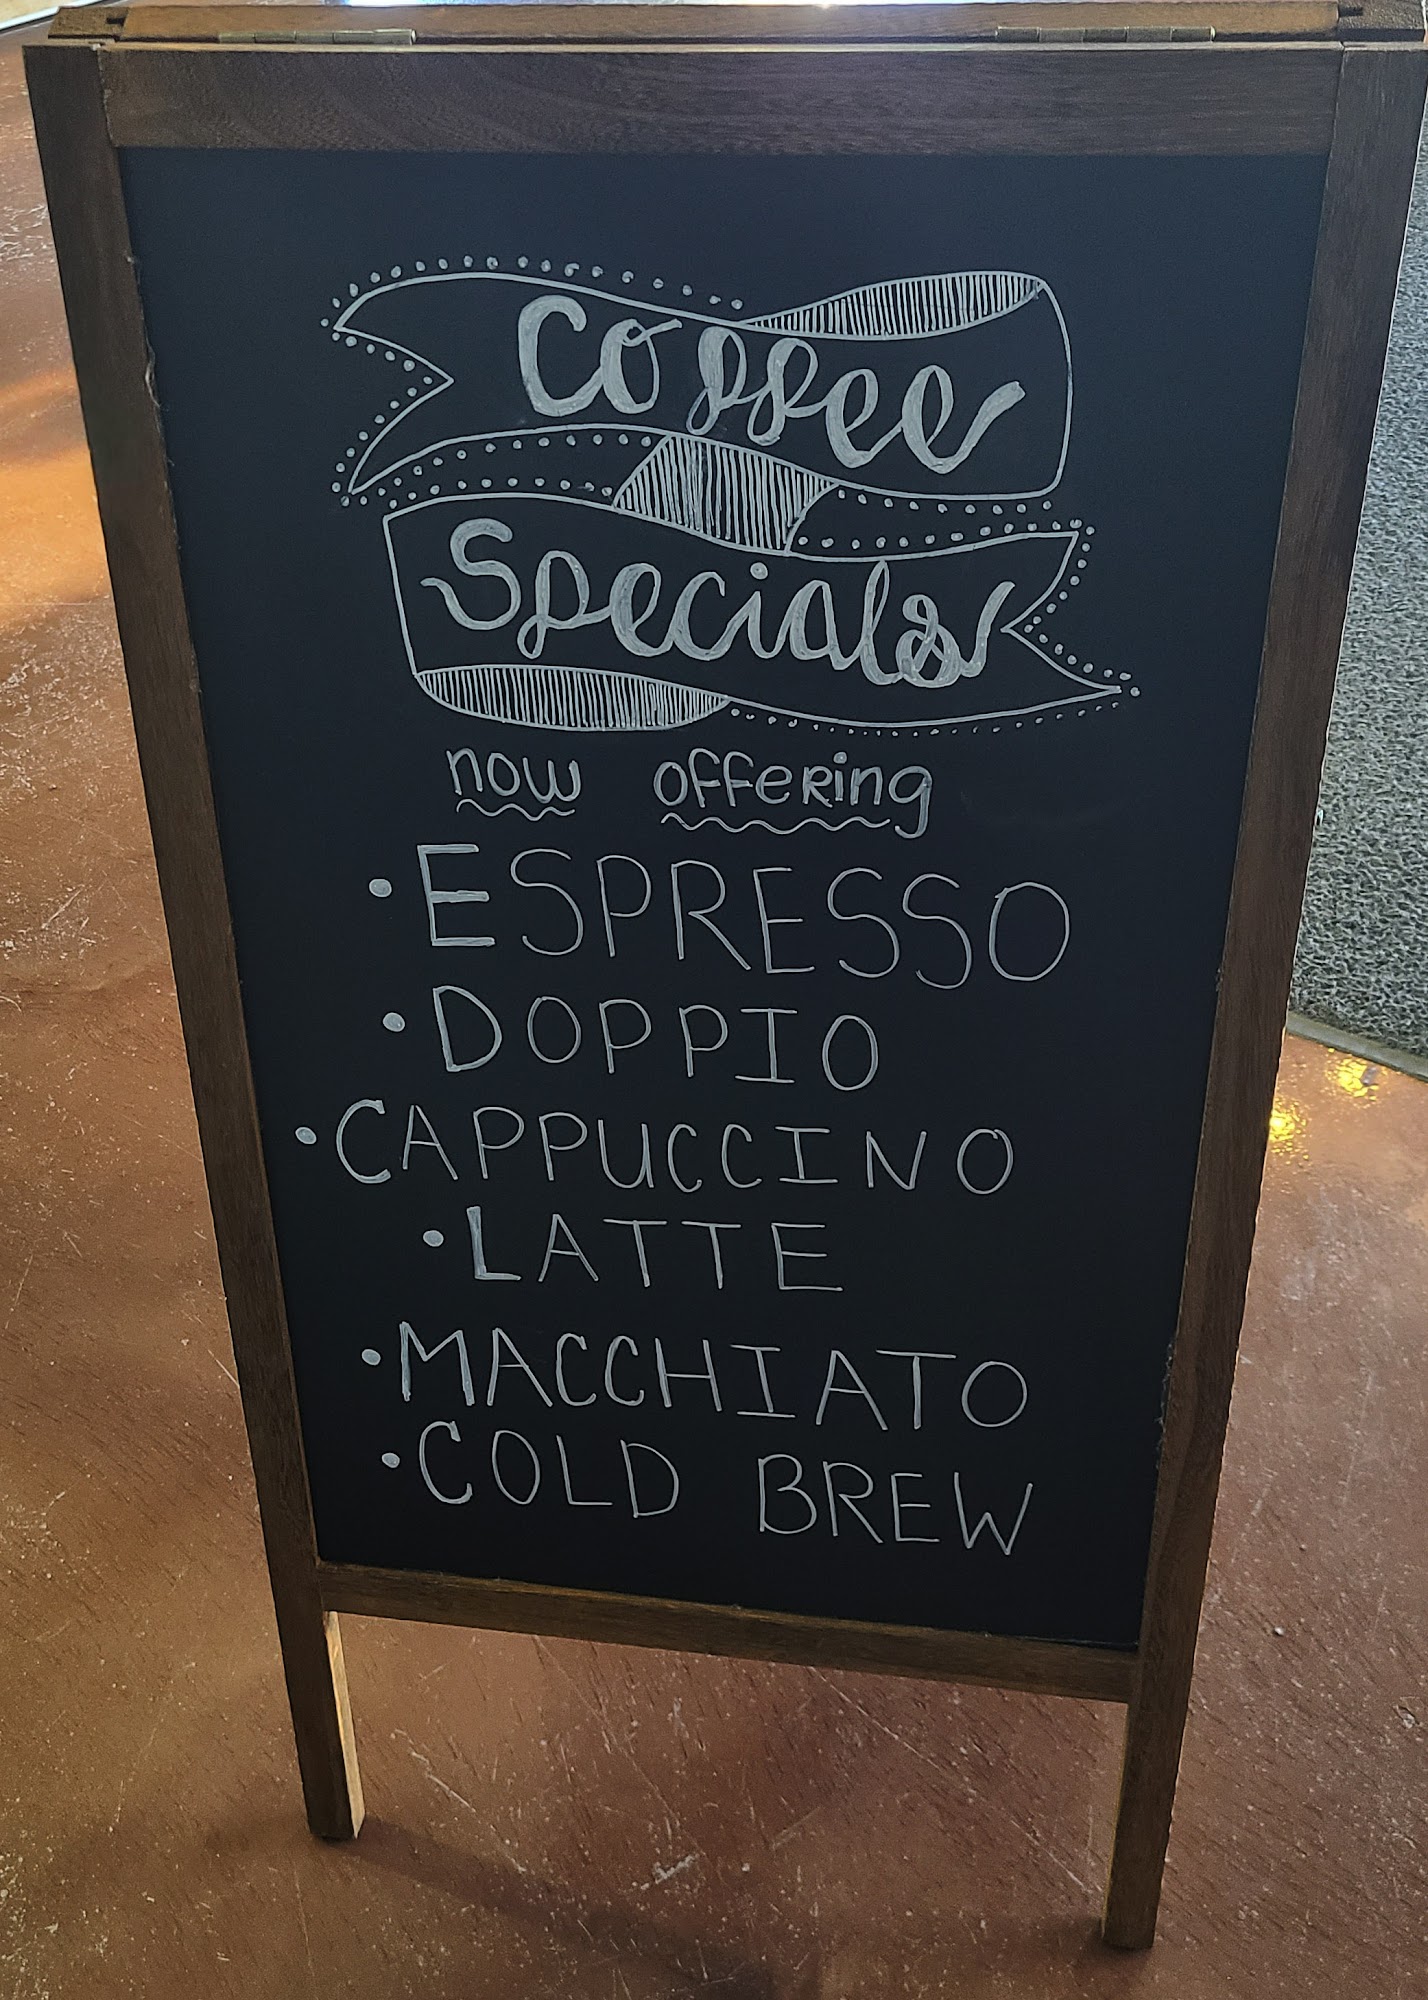 Coffee
Specials
now offering
• ESPRESSO
• DOPPIO
• CAPPUCCINO
• LATTE
• MACCHIATO
• COLD BREW